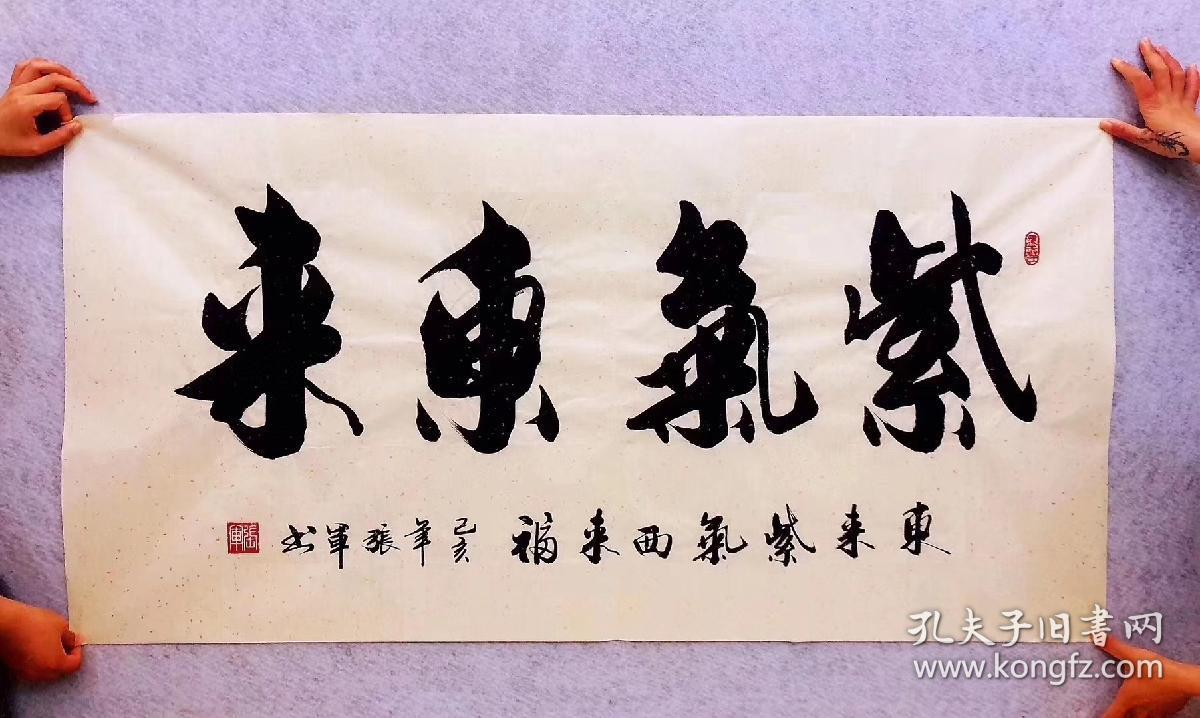 紫氣東来
東来紫氣西来福
己亥年張軍书
張軍
孔夫子旧書网
www.kongfz.com